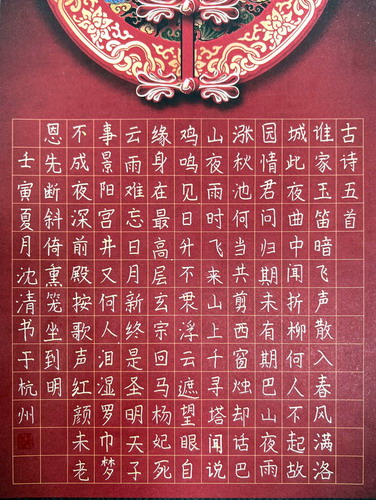 古诗五首
谁家玉笛暗飞声散入春风满洛
城此夜曲中闻折柳何人不起故
园情君问归期未有期巴山夜雨
涨秋池何当共剪西窗烛却话巴
山夜雨时飞来山上千寻塔闻说
鸡鸣见日升不畏浮云遮望眼自
缘身在最高层玄宗回马杨妃死
云雨难忘日月新终是圣明天子
事景阳宫井又何人泪湿罗巾梦
不成夜深前殿按歌声红颜未老
恩先断斜倚熏笼坐到明
壬寅夏月沈清书于杭州